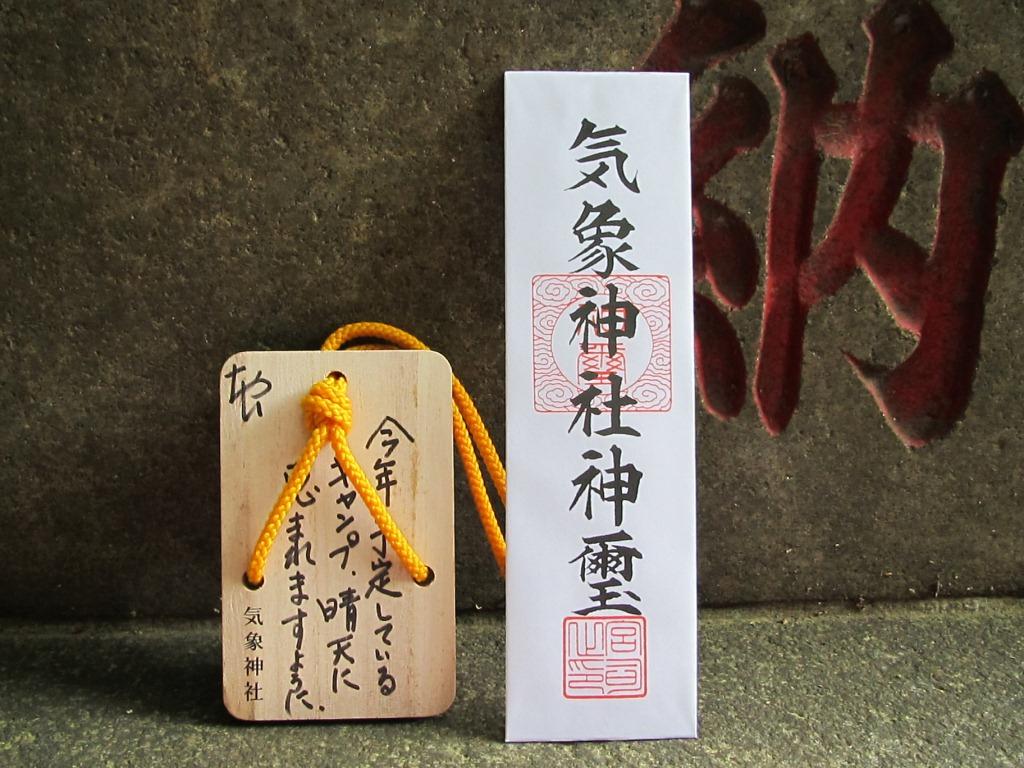 納
気象神社神璽
宮司之印
今年予定している
キャンプ、晴天に
恵まれますように。
気象神社